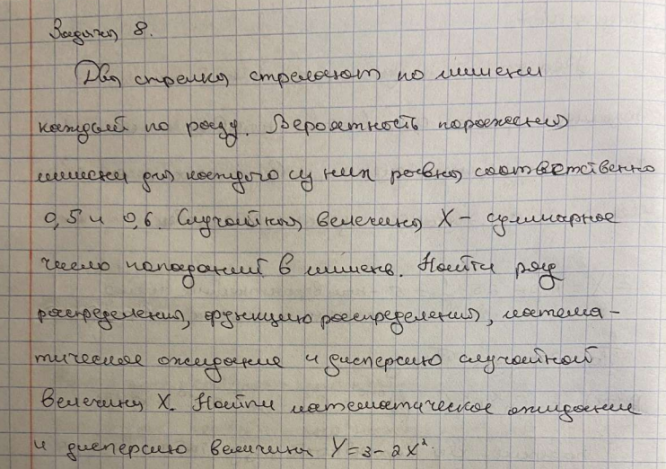 Задача 8.
Два стрелка стреляют по мишени
каждый по разу. Вероятность поражения
мишени для каждого из них равна соответственно
0,5 и 0,6. Случайная величина X – суммарное
число попаданий в мишень. Найти ряд
распределения, функцию распределения, матема-
тическое ожидание и дисперсию случайной
величины X. Найти математическое ожидание
и дисперсию величины Y=3-2X².